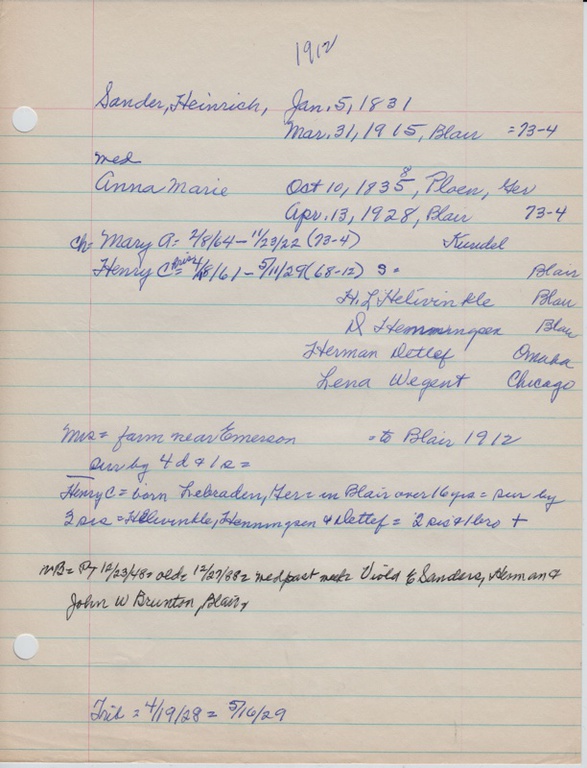 1912
Sander, Heinrich, Jan. 5, 1831
Mar. 31, 1915, Blair = 73-4
med
Anna Marie Oct 10, 1835 8, Ploen, Ger
Apr. 13, 1928, Blair 73-4
ch= Mary A= 2/8/64 - 11/23/22 (73-4) Kundel
Henry C 4/8/61 - 5/11/29 (68-12) S = Blair
H. L Helivinkle Blair
D Hemmingsen Blair
Herman Detlef Omaha
Lena Wegent Chicago
Mrs = farm near Emerson = to Blair 1912
sur by 4 d & 1 s =
Henry C = born Lebraden, Ger = in Blair over 16 yrs = sur by
3 sis = Helvinkle, Henningsen & Detlef = 2 sis & 1 bro +
NB = PT 12/23/48 = old = 12/27/88 = med past week Viola E Sanders, Herman &
John W Brunton, Blair,
Trib = 4/19/28 = 5/16/29